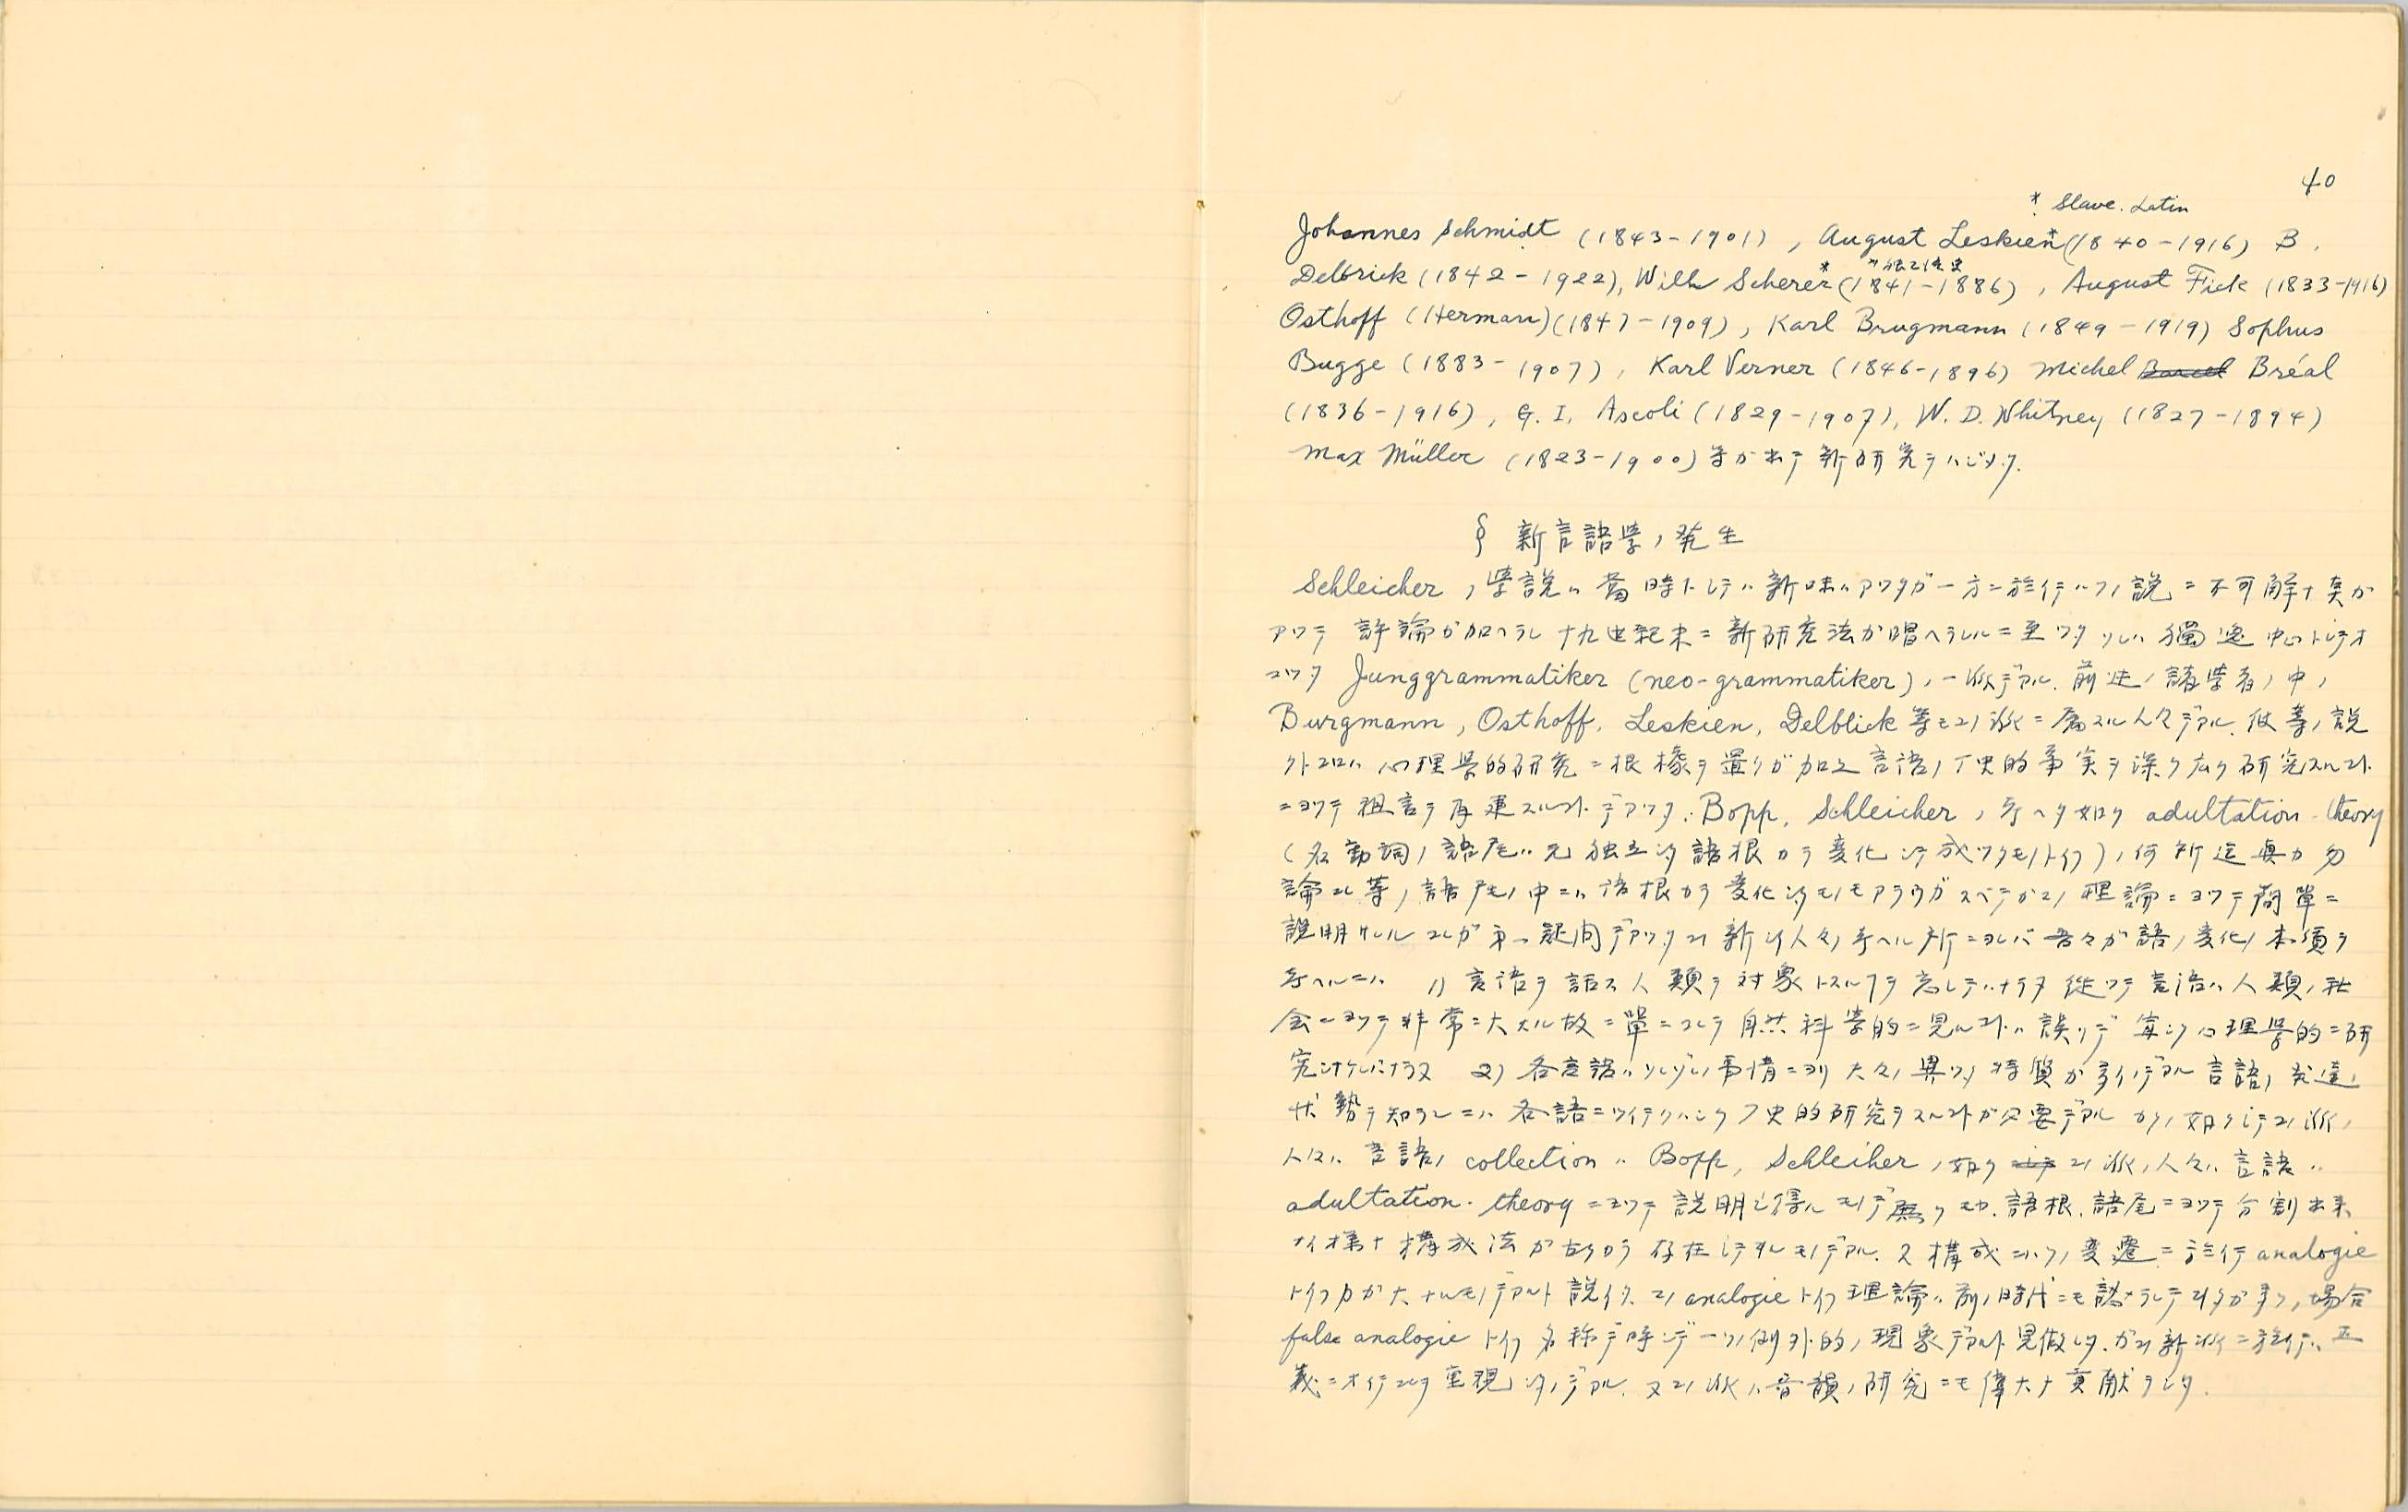 40
* Slave. Latin
Johannes Schmidt (1843-1901), August Leskien* (1840-1916) B.
Delbrick (1842-1922), Willh Scherer* (1841-1886), August Fick (1833-1916)
Osthoff (Herman) (1847-1909), Karl Brugmann (1849-1919) Sophus
Bugge (1883-1907), Karl Verner (1846-1896) Michel Bréal
(1836-1916), G. I. Ascoli (1829-1907), W. D. Whitney (1827-1894)
Max Müller (1823-1900) 等が出テ新研究ヲハジメタ.
§ 新言語学ノ発生
Schleicher ノ学説ハ當時トシテハ新味ハアッタガ一方ニ於イテハソノ説ニ不可解ナ奌ガ
アッテ 評論ガ加ヘラレ 十九世紀末ニ新研究法ガ唱ヘラレルニ至ッタ ソレハ獨逸中心トシテオ
コッタ Junggrammatiker (neo-grammatiker) ノ一派デアル. 前述ノ諸学者ノ中ノ
Burgmann, Osthoff, Leskien, Delblick 等モコノ派ニ属スル人々デアル. 彼等ノ説
クトコロハ 心理学的研究ニ根據ヲ置クガ加之言語ノ歴史的事実ヲ深ク広ク研究スルコト
ニヨッテ 祖言ヲ再建スルコトデアッタ. Bopp, Schleicher ノ考ヘタ如ク adultation-theory
(名動詞ノ語尾ハ元独立シタ語根カラ変化シテ成ッタモノトイフ) ノ何所迄真カ 勿
論コレ等ノ語尾ノ中ニハ語根カラ変化シタモノモアラウガスベテガコノ理論ニヨッテ簡単ニ
説明サレル コレガ第一疑問デアッタ コノ新シイ人々ノ考ヘル所ニヨレバ 吾々ガ語ノ変化ノ本質ヲ
考ヘルニハ 1) 言語ヲ話ス人類ヲ対象トスルコトヲ忘レテハナラヌ 従ッテ言語ハ人類ノ社
会ニヨッテ非常ニ大ナル故ニ單ニコレヲ自然科学的ニ見ルコトハ誤リデ 宜シク心理学的ニ研
究シナケレバナラヌ 2) 各言語ハソレゾレノ事情ニヨリ 大々ノ異ッタ特質ガ多イノデアル 言語ノ発達ノ
状勢ヲ知ランニハ 各語ニツイテクハシク歴史的研究ヲスルコトガ必要デアル カクノ如クシテコノ派ノ
人々ハ 言語ノ collection ハ Bopp, Schleiher ノ如ク コノ派ノ人々ハ言語ハ
adultation-theory ニヨッテ説明シ得ルモノデ無ク 語根、語尾ニヨッテ分割出来
ナイ様ナ構成法ガ古クカラ存在シテヰルモノデアル. 又構成ニハソノ変遷ニ於イテ analogie
トイフ力ガ大ナルモノデアルト説イタ. コノ analogie トイフ理論ハ前ノ時代ニモ認メラレテヰタガ多クノ場合
false analogie トイフ名称デ呼ンデ一ツノ例外的ノ現象デアルト見做シタ. ガコノ新派ニ於イテハ正
義ニオイテコレヲ重視シタノデアル. 又コノ派ハ音韻ノ研究ニモ偉大ナ貢献ヲシタ.